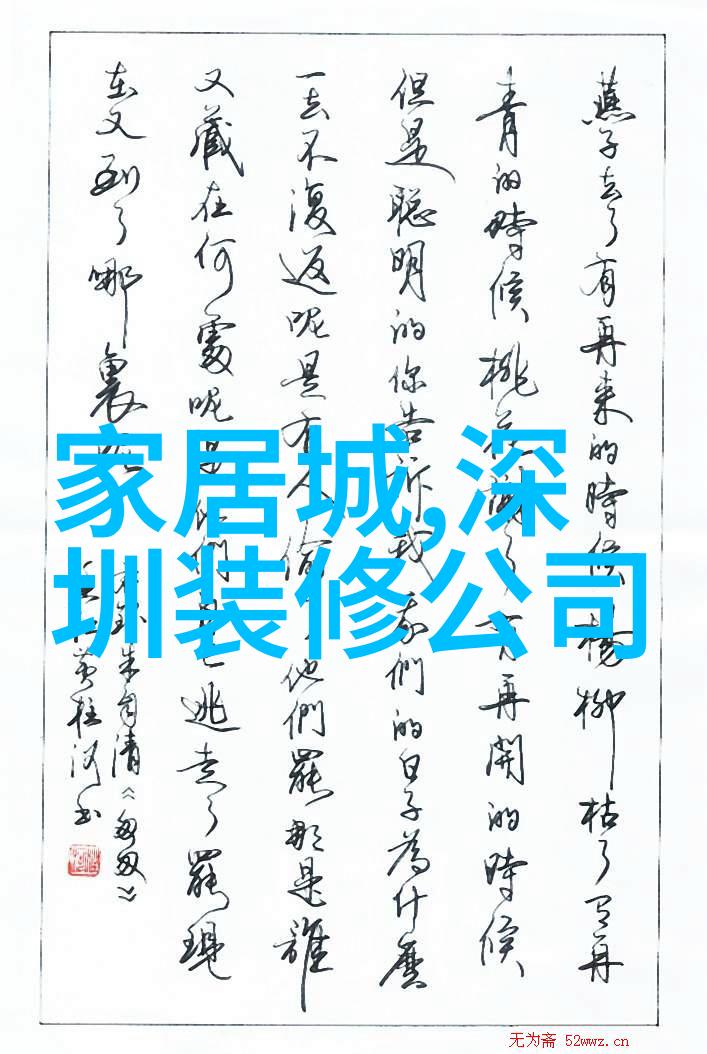 燕子去了有再来的時候楊柳枯了有再
青的時候桃花謝了有再開的時候
但是聪明的你告訴我我們的日子為什麼
一去不復返呢是有人偷了他們罷那是誰
又藏在何處呢是他們自己逃走了罷現
在又到了哪裏呢
朱自清《匆匆》
黄柱河书
家居城,深
圳装修公司
无为斋 52wwz.cn